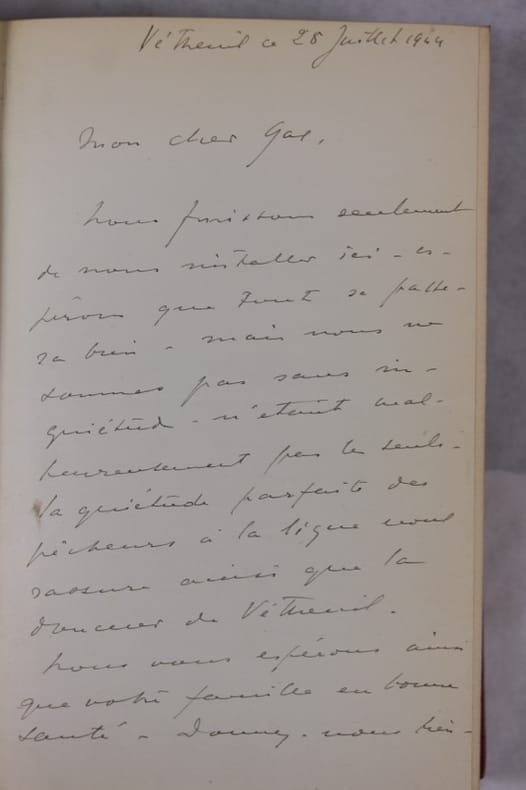 Vétheuil ce 28 Juillet 1944
Mon cher Gas,
Nous finissons seulement
de nous installer ici - es-
pérons que tout se passe-
ra bien - mais nous ne
sommes pas sans in-
quiétude - n'étant mal-
heureusement pas les seuls -
la quiétude parfaite des
pêcheurs à la ligne nous
rassure ainsi que la
douceur de Vétheuil.
Nous vous espérons ainsi
que votre famille en bonne
santé - Donnez-nous bien-